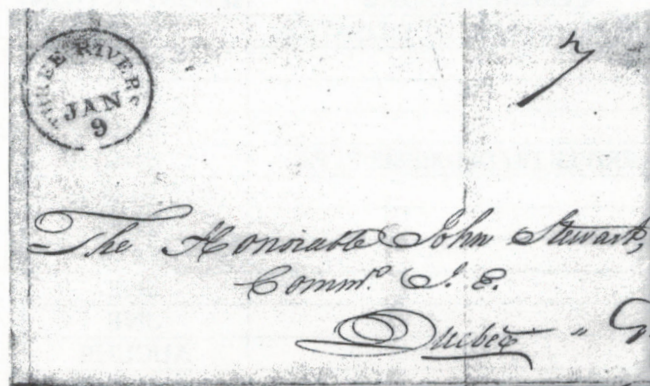 THREE RIVERS
JAN
9
7
The Honorable John Stewart,
Commr. J. E.
Quebec "